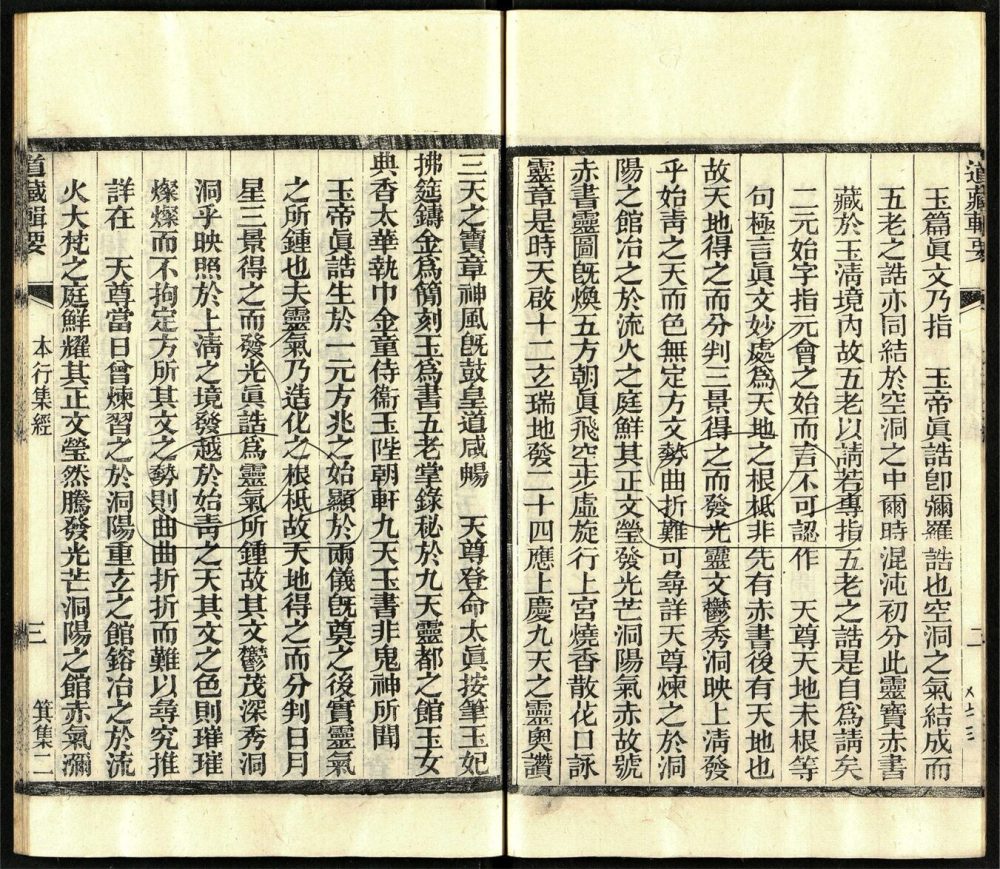 道藏輯要
二
玉篇眞文乃指　玉帝眞誥卽彌羅誥也空洞之氣結成而
五老之誥亦同結於空洞之中爾時混沌初分此靈寶赤書
藏於玉淸境內故五老以請若專指五老之誥是自爲請矣
二元始字指元會之始而言不可認作　天尊天地未根等
句極言眞文妙處爲天地之根柢非先有赤書後有天地也
故天地得之而分判三景得之而發光靈文鬱秀洞映上淸發
乎始靑之天而色無定方文勢曲折難可尋詳天尊煉之於洞
陽之館冶之於流火之庭鮮其正文瑩發光芒洞陽氣赤故號
赤書靈圖旣煥五方朝眞飛空步虛旋行上宮燒香散花口詠
靈章是時天啟十二玄瑞地發二十四應上慶九天之靈奧讚
三天之寶章神風旣鼓皇道咸暢　天尊登命太眞按筆玉妃
拂筵鑄金爲簡刻玉爲書五老掌錄秘於九天靈都之館玉女
典香太華執巾金童侍衞玉陛朝軒九天玉書非鬼神所聞
玉帝眞誥生於一元方兆之始顯於兩儀旣奠之後實靈氣
之所鍾也夫靈氣乃造化之根柢故天地得之而分判日月
星三景得之而發光眞誥爲靈氣所鍾故其文鬱茂深秀洞
洞乎映照於上淸之境發越於始靑之天其文之色則璀璀
燦燦而不拘定方所其文之勢則曲曲折折而難以尋究推
詳在　天尊當日曾煉習之於洞陽重玄之館鎔冶之於流
火大梵之庭鮮耀其正文瑩然騰發光芒洞陽之館赤氣瀰
道藏輯要
本行集經
三
箕集二